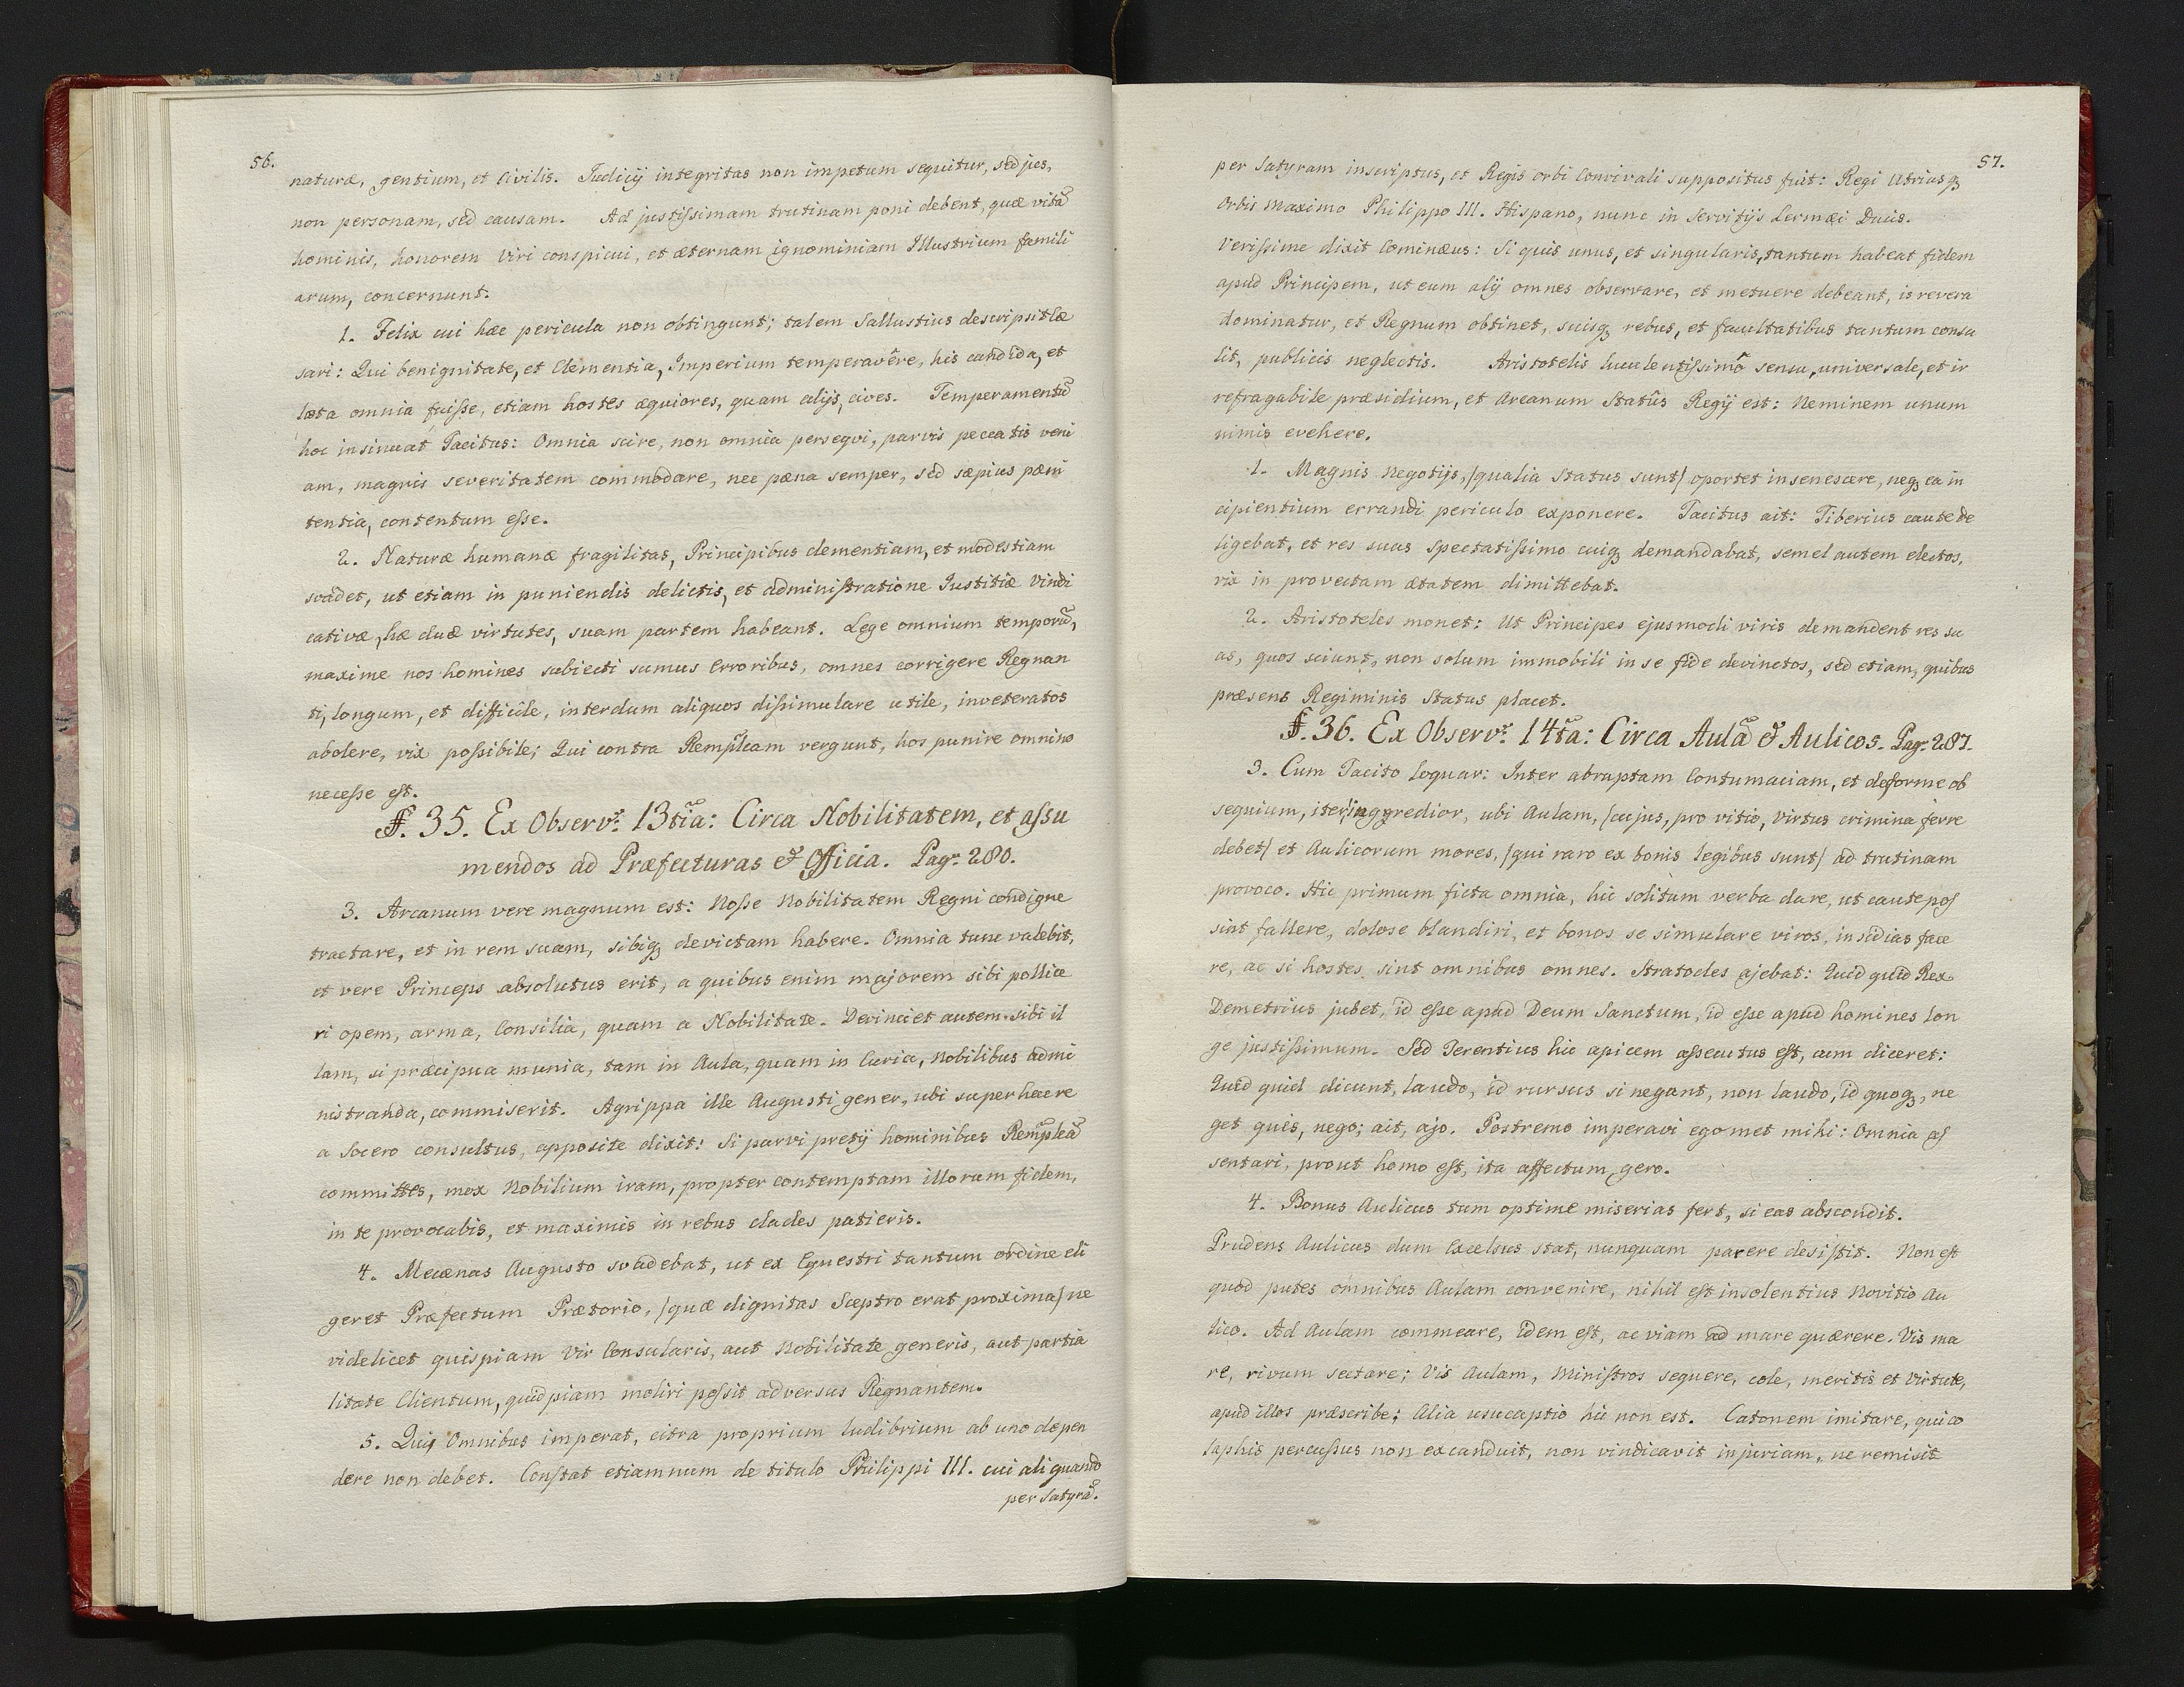 56.
naturæ, gentium, et Civilis. Judicij integritas non impetum sequitur, sed jus,
non personam, sed causam. Ad justissimam trutinam poni debent, quæ vitã
hominis, honorem Viri conspicui, et æternam ignominiam Illustrium famili
arum, concernunt.
1. Felix cui hæc pericula non obtingunt; talem Sallustius descripsit Cæ
sari: Qui benignitate, et Clementia, Imperium temperavêre, his candida, et
læta omnia fuisse, etiam hostes æquiores, quam alijs, cives. Temperamentũ
hoc insinuat Tacitus: Omnia scire, non omnia persequi, parvis peccatis veni
am, magnis severitatem commodare, nec pæna semper, sed sæpius pæni
tentia, contentum esse.
2. Naturæ humanæ fragilitas, Principibus clementiam, et modestiam
svadet, ut etiam in puniendis delictis, et administratione Justitiæ Vindi
cativæ, hæ duæ virtutes, suam partem habeant. Lege omnium temporũ,
maxime nos homines subiecti sumus Erroribus, omnes corrigere Regnan
ti, longum, et difficile, interdum aliquos dissimulare utile, inveteratos
abolere, vix possibile; Qui contra Rempl̃cam vergunt, hos punire omnino
necesse est.
§. 35. Ex Observ: 13tia: Circa Nobilitatem, et assu
mendos ad Præfecturas & Officia. Pag. 280.
3. Arcanum vere magnum est: Nosse Nobilitatem Regni condigne
tractare, et in rem suam, sibiq devictam habere. Omnia tunc valebit,
et vere Princeps absolutus erit, a quibus enim majorem sibi pollice
ri opem, arma, Consilia, quam a Nobilitate. Devinciet autem sibi il
lam, si præcipua munia, tam in Aula, quam in Curia, Nobilibus admi
nistranda, commiserit. Agrippa ille Augusti gener, ubi super hac re
a Socero consultus, apposite dixit: Si parvi pretij hominibus Rempl̃cã
committes, mox Nobilium iram, propter contemptam illorum fidem,
in te provocabis, et maximis in rebus clades patieris.
4. Mecænas Augusto svadebat, ut ex Equestri tantum ordine eli
geret Præfectum Prætorio, /quæ dignitas Sceptro erat proxima/ ne
videlicet quispiam Vir Consularis, aut Nobilitate generis, aut partia
litate Clientum, quidpiam moliri possit adversus Regnantem.
5. Qui Omnibus imperat, citra proprium ludibrium ab uno depen
dere non debet. Constat etiamnum de titulo Philippi III. cui aliquando
per Satyrã.
57.
per Satyram inscriptus, et Regis orbi Convivali suppositus fuit: Regi Utriusq
Orbis Maximo Philippo III. Hispano, nunc in Servitijs Lermæi Ducis.
Verissime dixit Cominæus: Si quis unus, et singularis, tantum habeat fidem
apud Principem, ut eum alij omnes observare, et metuere debeant, is revera
dominatur, et Regnum obtinet, suisq rebus, et facultatibus tantum consu
lit, publicis neglectis. Aristotelis luculentissimô sensu, universale, et ir
refragabile præsidium, et Arcanum Statûs Regij est: Neminem unum
nimis evehere.
1. Magnis Negotijs, /qualia Status sunt/ oportet insenescere, neq ea in
cipientium errandi periculo exponere. Tacitus ait: Tiberius caute de
ligebat, et res suas spectatissimo cuiq demandabat, semel autem electos,
vix in provectam ætatem dimittebat.
2. Aristoteles monet: Ut Principes ejusmodi viris demandent res su
as, quos sciunt, non solum immobili in se fide devinctos, sed etiam, quibus
præsens Regiminis Status placet.
§. 36. Ex Observ: 14ta: Circa Aulã & Aulicos. Pag. 287.
3. Cum Tacito loquar: Inter abruptam Contumaciam, et deforme ob
sequium, iter ingredior, ubi Aulam, /cujus, pro vitio, Virtus crimina ferre
debet/ et Aulicorum mores, /qui raro ex bonis legibus sunt/ ad trutinam
provoco. Hic primum ficta omnia, hic solitum verba dare, ut caute pos
sint fallere, dolose blandiri, et bonos se simulare viros, insidias face
re, ac si hostes sint omnibus omnes. Stratocles ajebat: Quidquid Rex
Demetrius jubet, id esse apud Deum Sanctum, id esse apud homines lon
ge justissimum. Sed Terentius hic apicem assecutus est, cum diceret:
Quidquid dicunt, laudo, id rursus si negant, non laudo, id quoq, ne
get quis, nego; ait, ajo. Postremo imperavi egomet mihi: Omnia as
sentari, prout homo est, ita affectum gero.
4. Bonus Aulicus tum optime miserias fert, si eas abscondit.
Prudens Aulicus dum Excelsus stat, nunquam parere desistit. Non est
quod putes omnibus Aulam convenire, nihil est insolentius Novitio Au
lico. Ad Aulam commeare, idem est, ac viam ad mare quærere. Vis ma
re, rivum sectare; Vis Aulam, Ministros sequere, cole, meritis et Virtute,
apud illos præscribe; Alia usucaptio hic non est. Catonem imitare, qui co
laphis percussus non excanduit, non vindicavit injuriam, ne remisit